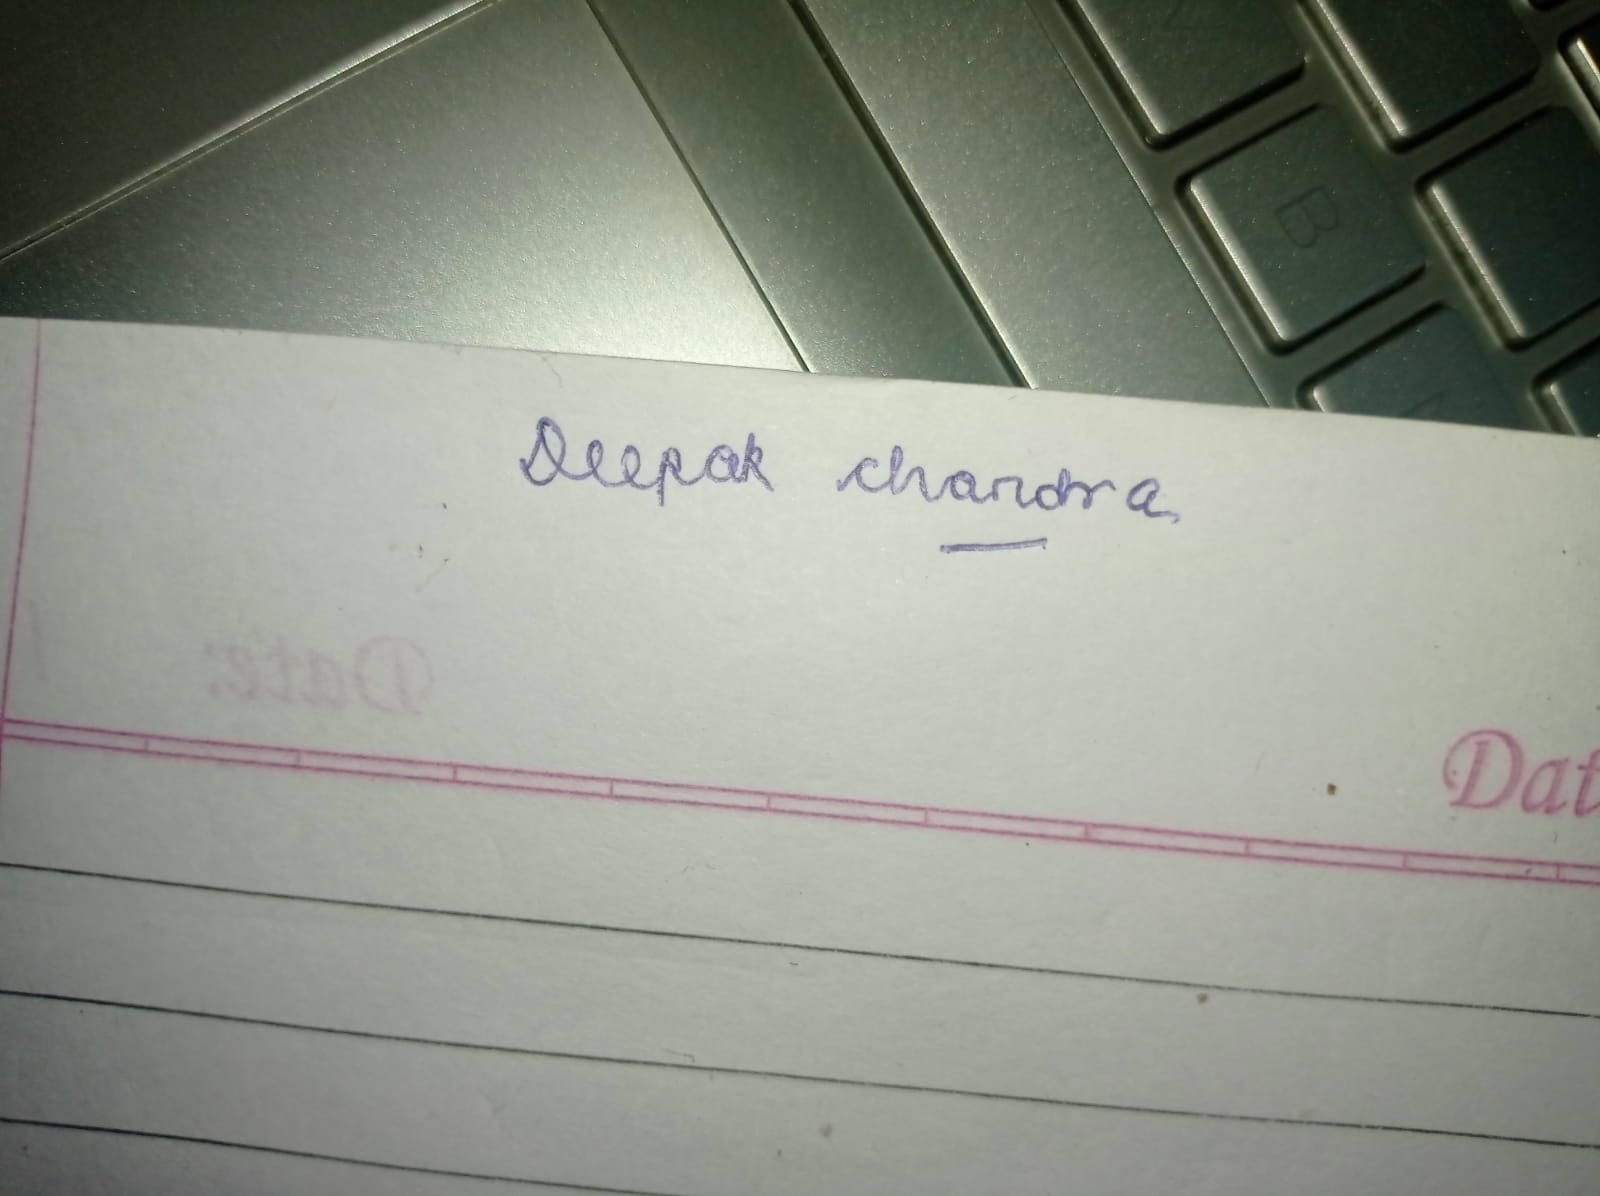 B
Deepak chandra
Date:
Dat